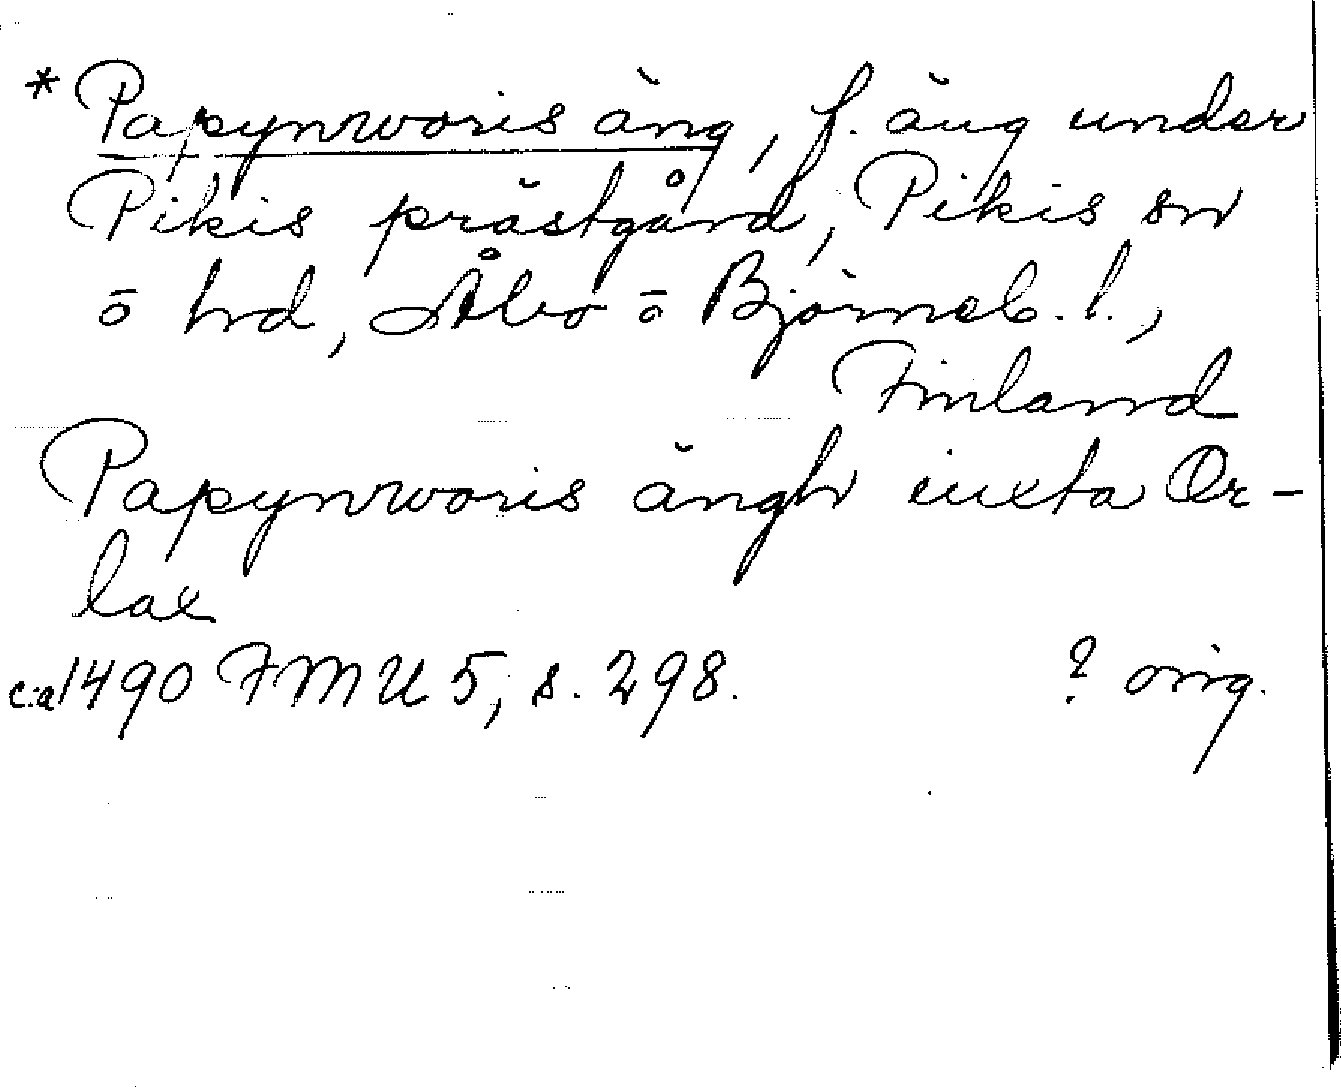 * Papynworis äng, f. äng under
Pikis prästgård, Pikis sn
ō hd, Åbo ō Björneb. l.,
Finland
Papynworis ängh iuxta Or-
lax
c:a 1490 FMU 5, s. 298. ? orig.